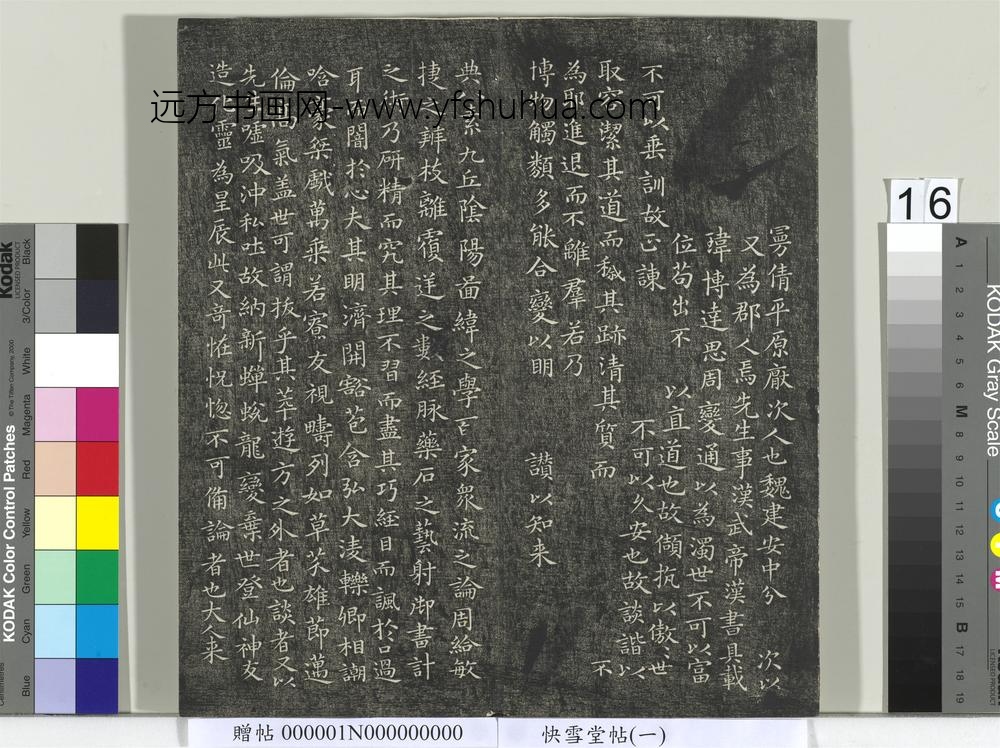 曼倩平原厭次人也魏建安中分 次以
又為郡人焉先生事漢武帝漢書具載
瑋博達思周變通以為濁世不可以富
位苟出不 以直道也故頡抗以傲〻世
不可以垂訓故正諫 不可以久安也故談諧以
取容潔其道而穢其跡清其質而 不
為耶進退而不離羣若乃
博物觸類多能合變以明 讚以知来
典八索九丘陰陽啚緯之學百家衆流之論周給敏
捷之辯枝離覆逆之數経脉藥石之藝射御書計
之術乃研精而究其理不習而盡其巧経目而諷於口過
耳而闇於心夫其明濟開豁苞含弘大淩轢卿相謿
哈豪桀戲萬乘若寮友視疇列如草芥雄節邁
倫高氣盖世可謂拔乎其萃遊方之外者也談者又以
先生噓吸沖和吐故納新蟬蛻龍變棄世登仙神友
造化靈為星辰此又奇恠怳惚不可備論者也大人来
远方书画网-www.yfshuhua.com
16
贈帖 000001N000000000
快雪堂帖(一)
Kodak
LICENSED PRODUCT
KODAK Color Control Patches
© The Tiffen Company, 2000
Black
3/Color
White
Magenta
Red
Yellow
Green
Cyan
Blue
KODAK Gray Scale
A 1 2 3 4 5 6 M 8 9 10 11 12 13 14 15 B 17 18 19